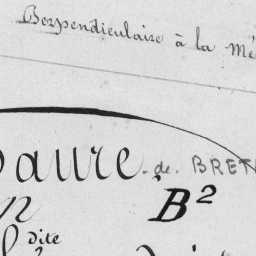 Perpendiculaire à la Mé
aure de BRET
B²
dite